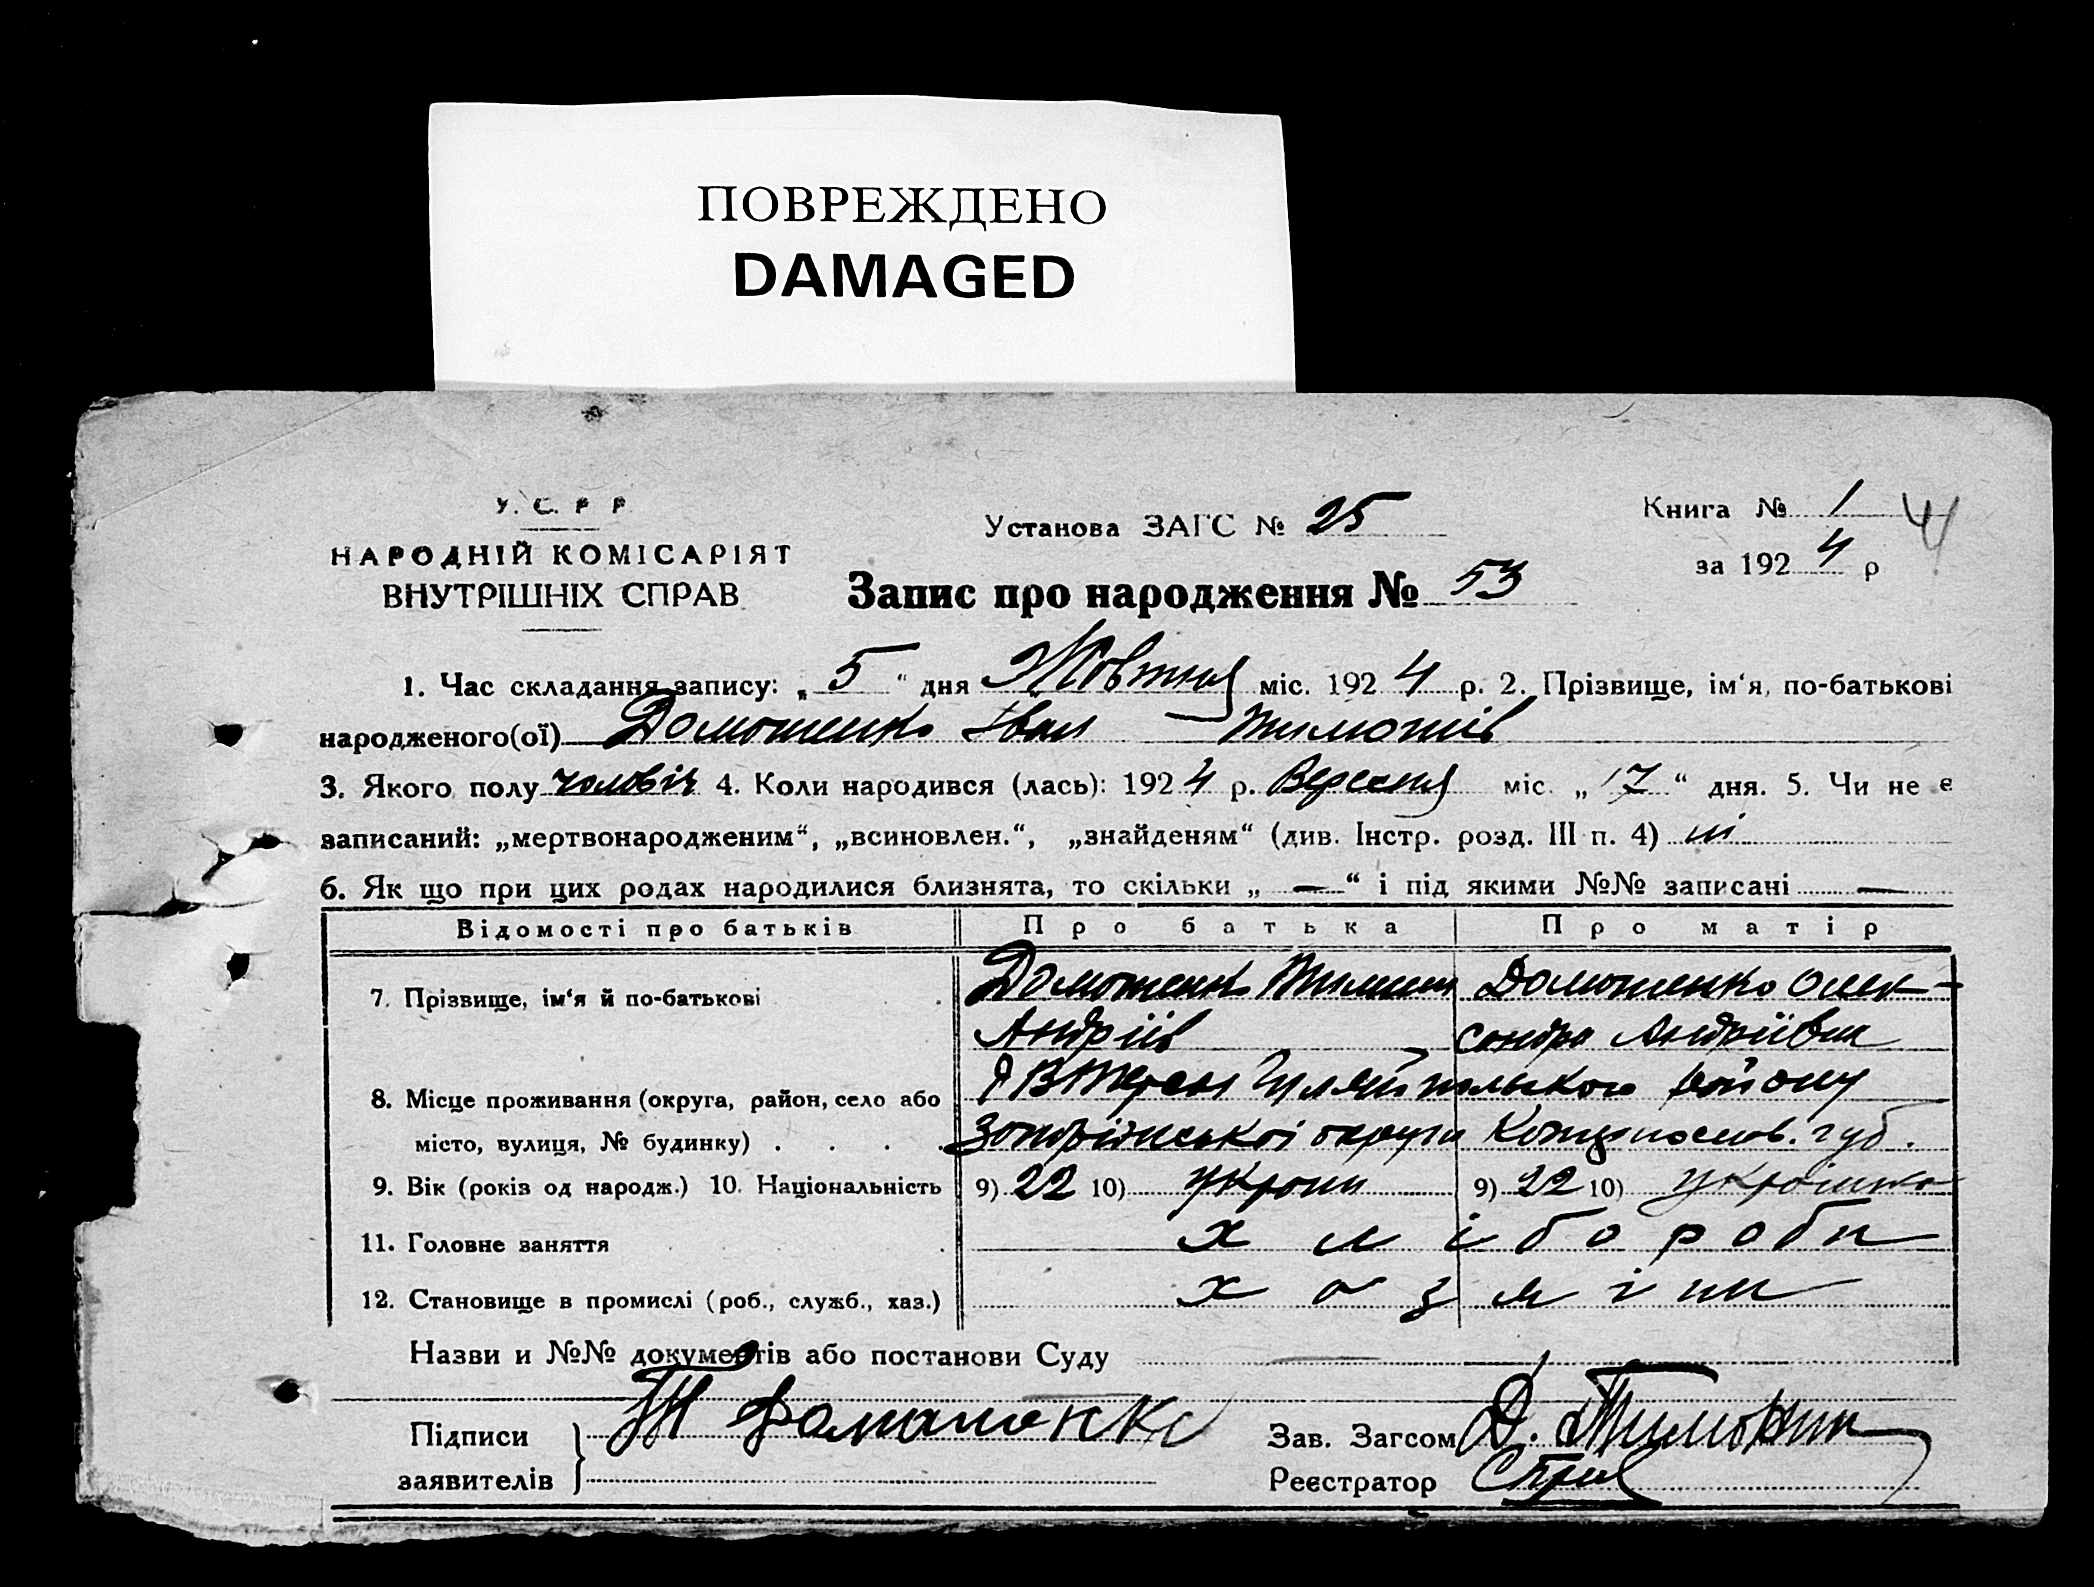 ПОВРЕЖДЕНО
DAMAGED
У. С. Р Р
НАРОДНІЙ КОМІСАРІЯТ
ВНУТРІШНІХ СПРАВ
Установа ЗАГС № 25
Запис про народження № 53
Книга № 1 41
за 1924 р
1. Час складання запису: „5“ дня Жовтня міс. 1924 р. 2. Прізвище, ім‘я, по-батькові
народженого(ої) Домошенко Іван Тимошів
3. Якого полу чоловіч 4. Коли народився (лась): 1924 р. Вересня міс. „17“ дня. 5. Чи не є
записаний: „мертвонародженим“, „всиновлен.“, „знайденям“ (див. Інстр. розд. III п. 4) ні
6. Як що при цих родах народилися близнята, то скільки „—“ і під якими №№ записані —
Відомості про батьків Про батька Про матір
7. Прізвище, ім‘я й по-батькові Домошенк Тимиш Домошенко Олек-
Андріїв сандра Андріївна
8. Місце проживання (округа, район, село або Гуляйпольського району
місто, вулиця, № будинку) округи губ.
9. Вік (років од народж.) 10. Національність 9) 22 10) Україн 9) 22 10) Українка
11. Головне заняття хліборобн
12. Становище в промислі (роб., служб., хаз.) хозяїни
Назви и №№ документів або постанови Суду
Підписи
заявителів
Т Домашенко
Зав. Загсом Д.
Реєстратор